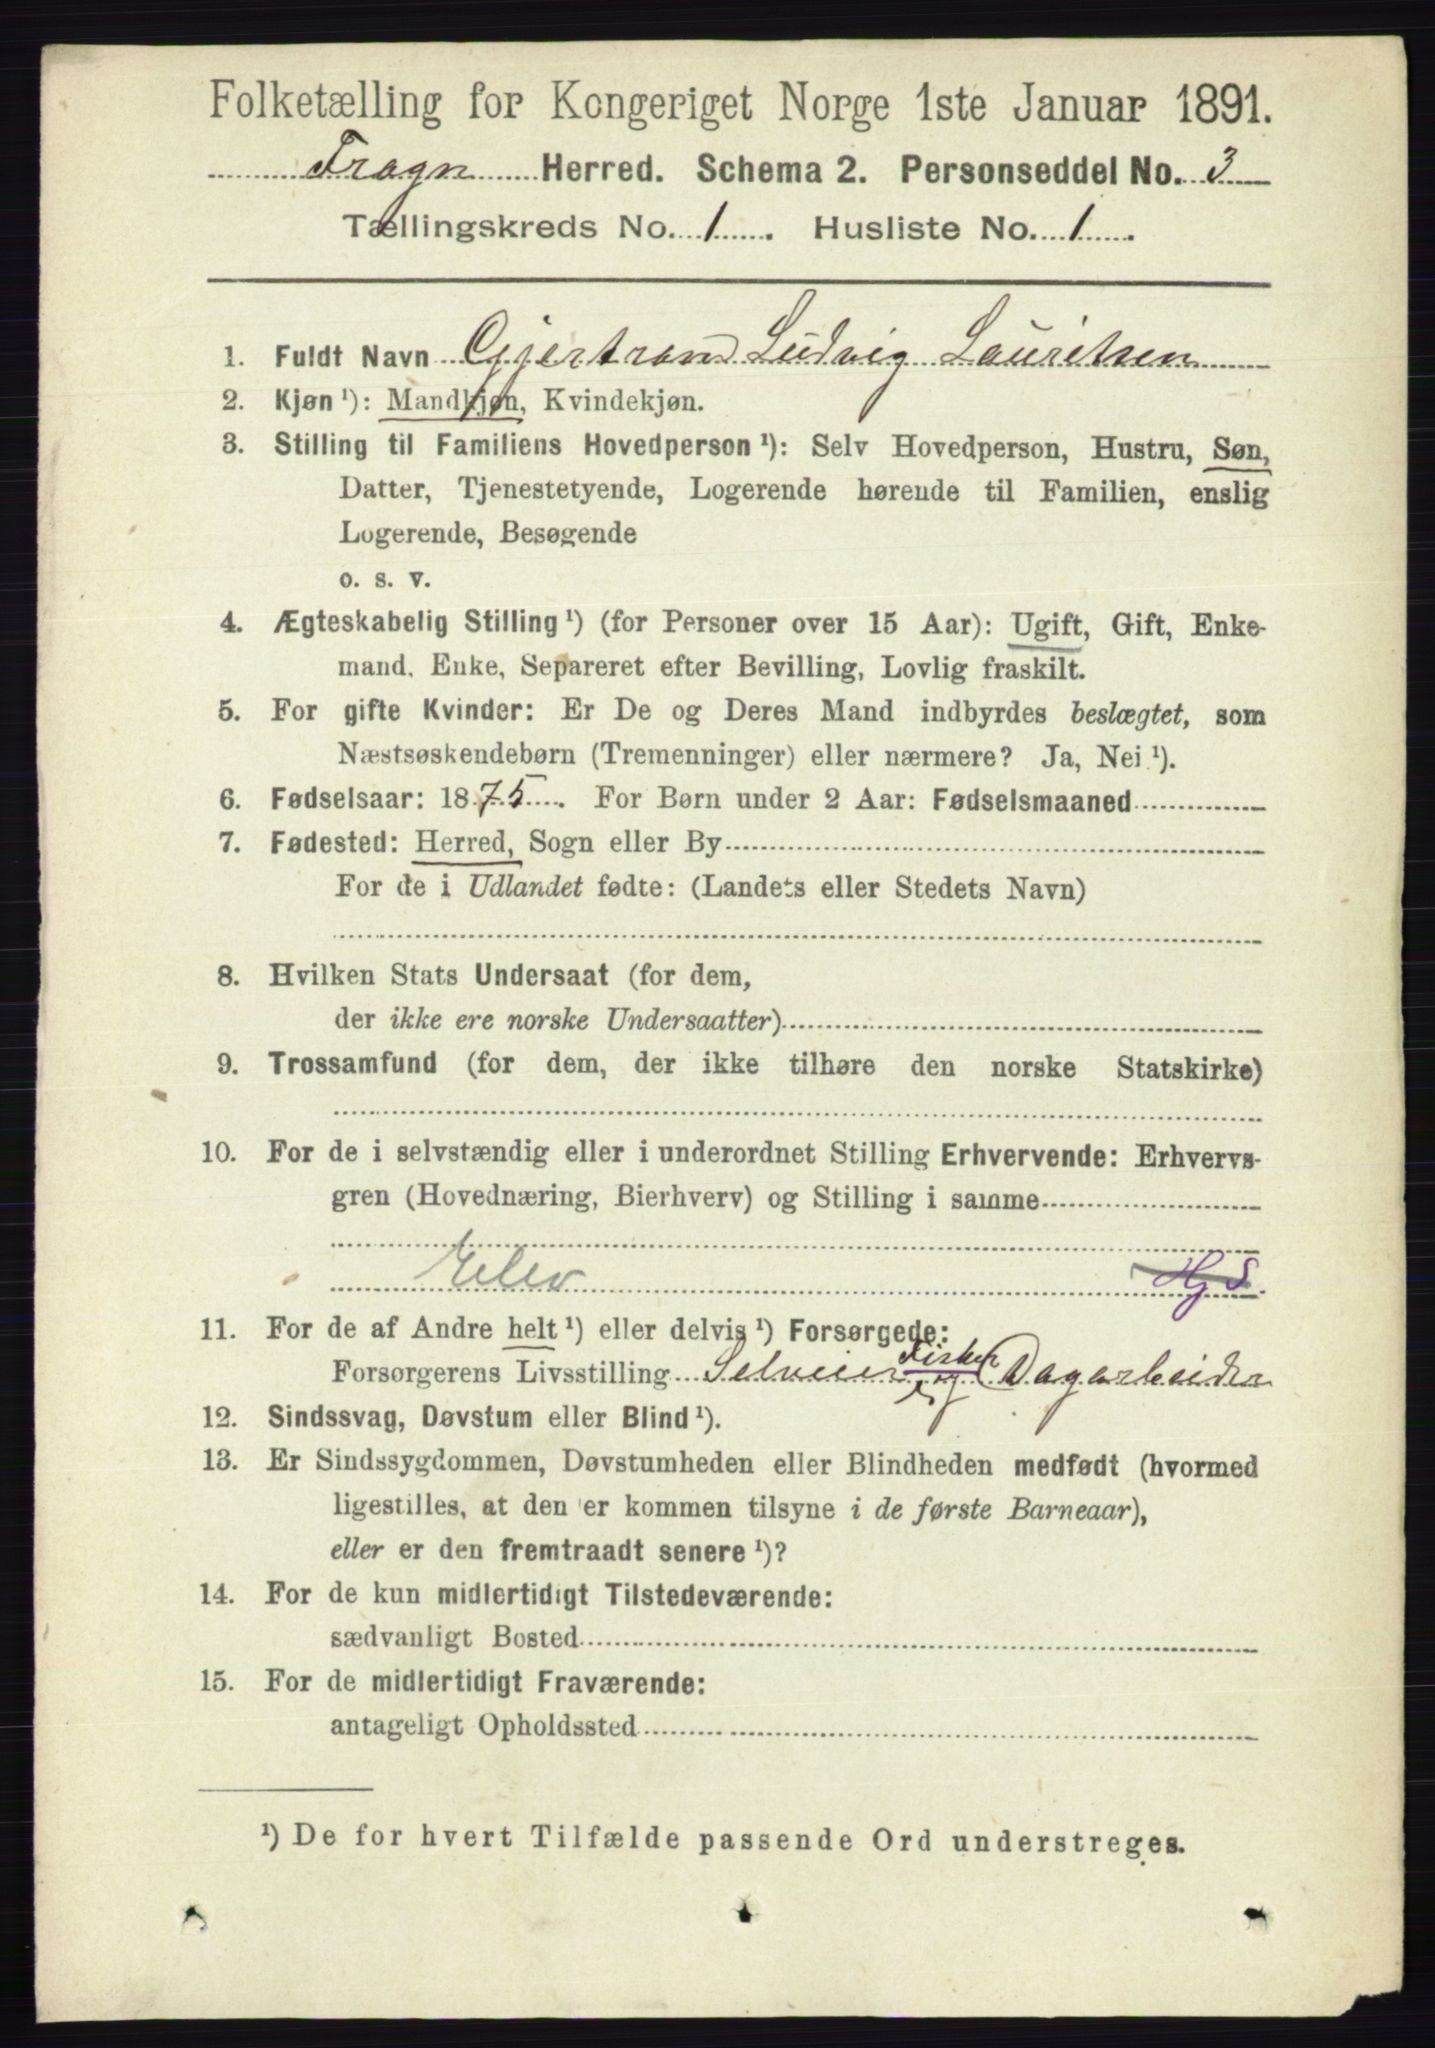 Folketælling for Kongeriget Norge 1ste Januar 1891.
Frogn Herred. Schema 2. Personseddel No. 3
Tællingskreds No. 1. Husliste No. 1.
1. Fuldt Navn Gjertran Ludvig Lauritsen
2. Kjøn ¹): Mandkjøn, Kvindekjøn.
3. Stilling til Familiens Hovedperson ¹): Selv Hovedperson, Hustru, Søn,
Datter, Tjenestetyende, Logerende hørende til Familien, enslig
Logerende, Besøgende
o. s. v.
4. Ægteskabelig Stilling ¹) (for Personer over 15 Aar): Ugift, Gift, Enke-
mand, Enke, Separeret efter Bevilling, Lovlig fraskilt.
5. For gifte Kvinder: Er De og Deres Mand indbyrdes beslægtet, som
Næstsøskendebørn (Tremenninger) eller nærmere? Ja, Nei ¹).
6. Fødselsaar: 1875. For Børn under 2 Aar: Fødselsmaaned
7. Fødested: Herred, Sogn eller By
For de i Udlandet fødte: (Landets eller Stedets Navn)
8. Hvilken Stats Undersaat (for dem,
der ikke ere norske Undersaatter)
9. Trossamfund (for dem, der ikke tilhøre den norske Statskirke)
10. For de i selvstændig eller i underordnet Stilling Erhvervende: Erhvervs-
gren (Hovednæring, Bierhverv) og Stilling i samme
Elev HjS.
11. For de af Andre helt ¹) eller delvis ¹) Forsørgede:
Forsørgerens Livsstilling Selveier Fisker og Dagarbeider
12. Sindssvag, Døvstum eller Blind ¹).
13. Er Sindssygdommen, Døvstumheden eller Blindheden medfødt (hvormed
ligestilles, at den er kommen tilsyne i de første Barneaar),
eller er den fremtraadt senere ¹)?
14. For de kun midlertidigt Tilstedeværende:
sædvanligt Bosted
15. For de midlertidigt Fraværende:
antageligt Opholdssted
¹) De for hvert Tilfælde passende Ord understreges.